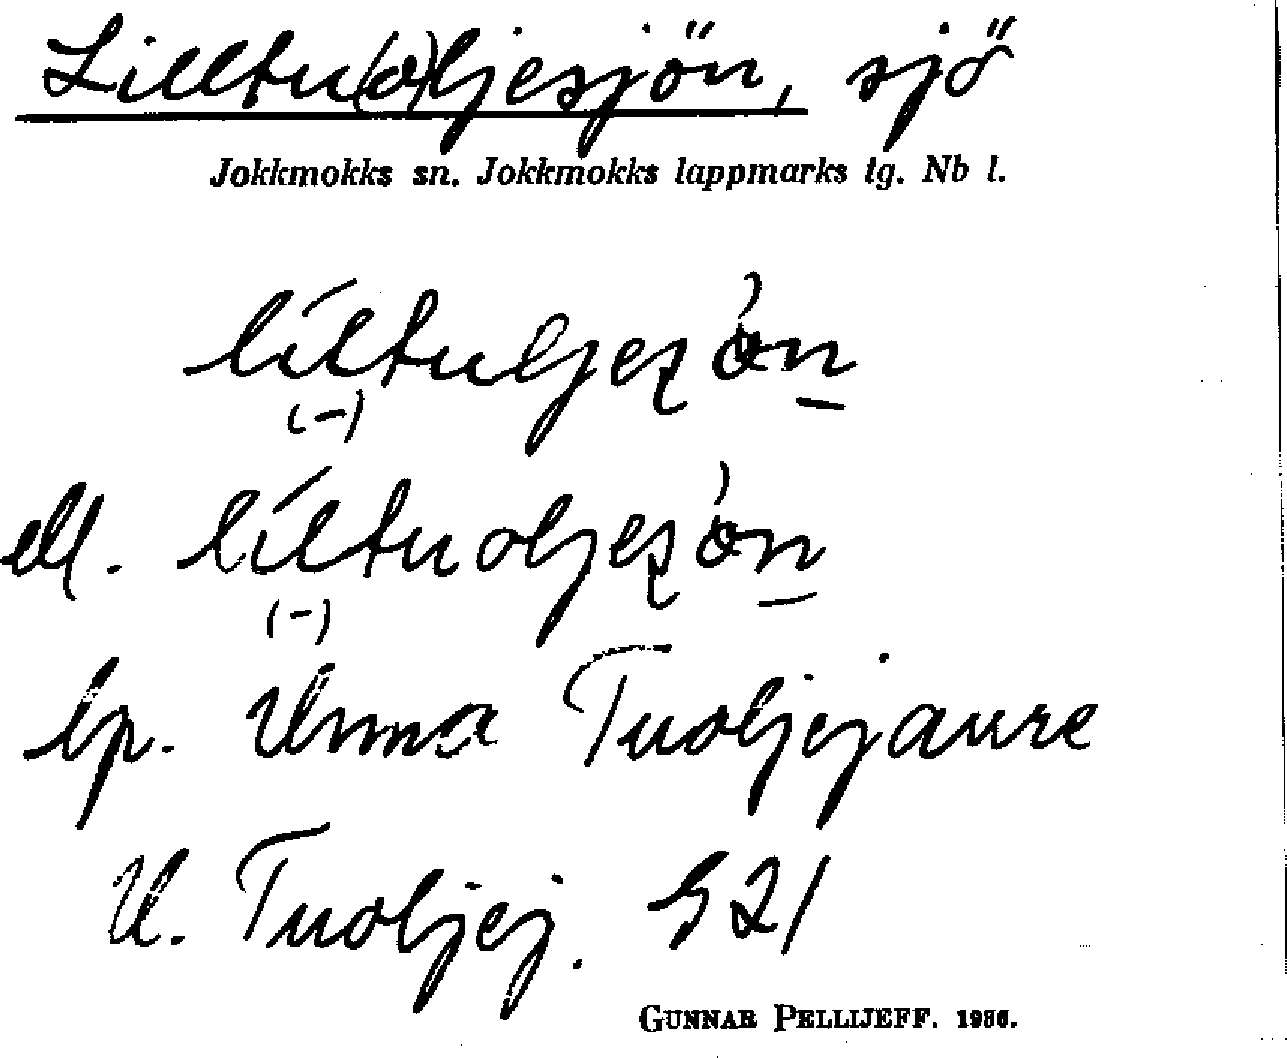 Lilltu(o)ljesjön, sjö
Jokkmokks sn. Jokkmokks lappmarks tg. Nb l.
líltuljeʂòn
(-)
ell. líltuoljeʂòn
(-)
lp. Unna Tuoljejaure
U. Tuoljej. S21
GUNNAR PELLIJEFF. 1986.